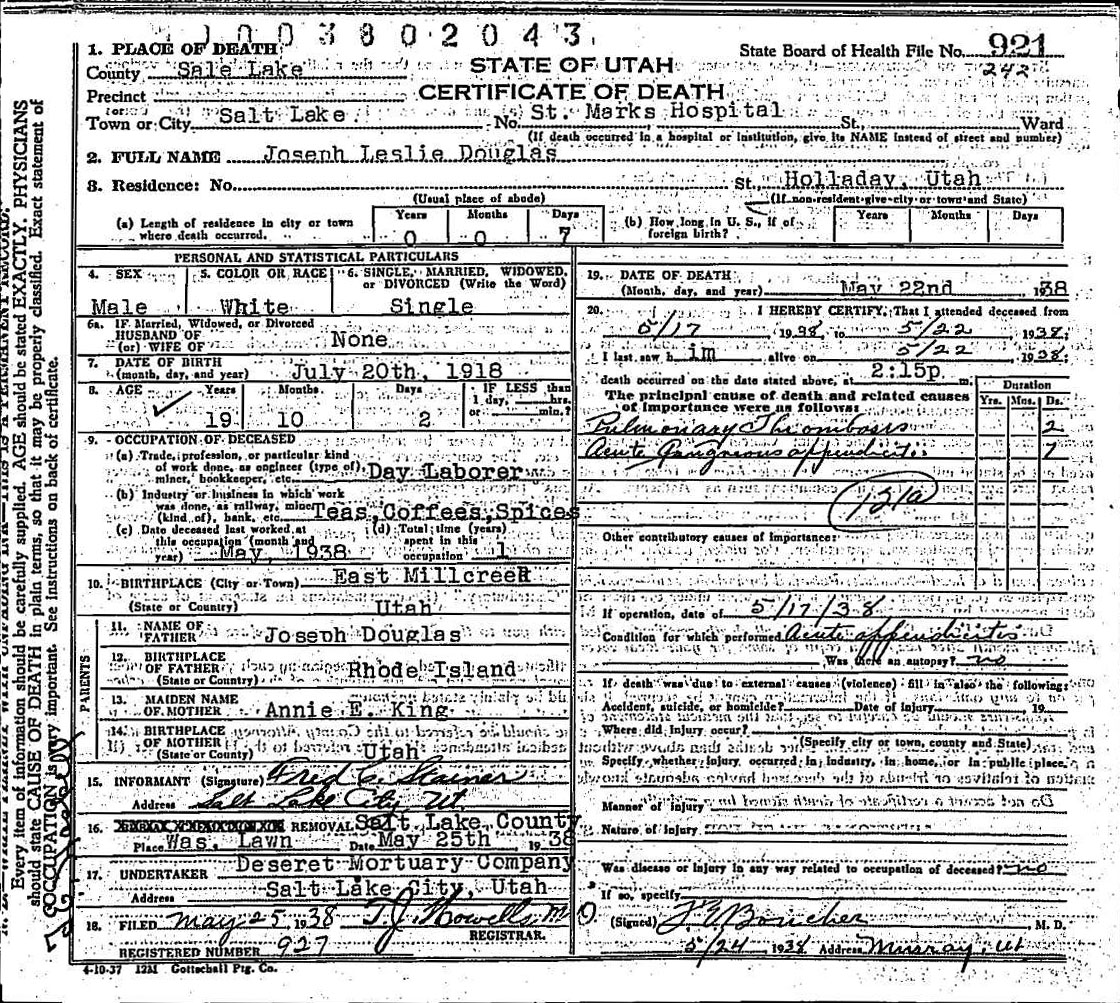 1003802043
1. PLACE OF DEATH
State Board of Health File No. 921
242
County Sale Lake
STATE OF UTAH
Precinct
CERTIFICATE OF DEATH
or
Town or City Salt Lake. No. St. Marks Hospital St., Ward
(If death occurred in a hospital or institution, give its NAME instead of street and number)
2. FULL NAME Joseph Leslie Douglas
3. Residence: No. St., Holladay, Utah
(Usual place of abode) (If non-resident give city or town and State)
(a) Length of residence in city or town where death occurred. Years 0 Months 0 Days 7
(b) How long in U. S., if of foreign birth? Years Months Days
PERSONAL AND STATISTICAL PARTICULARS
4. SEX Male
5. COLOR OR RACE White
6. SINGLE, MARRIED, WIDOWED, or DIVORCED (Write the Word) Single
6a. IF Married, Widowed, or Divorced
HUSBAND OF
(or) WIFE OF None
7. DATE OF BIRTH
(month, day, and year) July 20th, 1918
8. AGE Years 19 Months 10 Days 2 IF LESS than 1 day, hrs. or min.?
9. OCCUPATION OF DECEASED
(a) Trade, profession, or particular kind
of work done, as engineer (type of)
miner, bookkeeper, etc. Day Laborer
(b) Industry or business in which work
was done, as railway, mine
(kind of), bank, etc. Teas, Coffees, Spices
(c) Date deceased last worked at
this occupation (month and
year) May, 1938
(d) Total time (years)
spent in this
occupation 1
10. BIRTHPLACE (City or Town) East Millcreek
(State or Country) Utah
PARENTS
11. NAME OF
FATHER Joseph Douglas
12. BIRTHPLACE
OF FATHER
(State or Country) Rhode Island
13. MAIDEN NAME
OF MOTHER Annie E. King
14. BIRTHPLACE
OF MOTHER
(State or Country) Utah
15. INFORMANT (Signature) Fred C. Stainer
Address Salt Lake City, Ut.
16. REMOVAL Salt Lake County
Place Was. Lawn Date May 25th 1938
17. UNDERTAKER Deseret Mortuary Company
Address Salt Lake City, Utah
18. FILED May 25, 1938 T. J. Howells, M.D.
REGISTRAR.
REGISTERED NUMBER 927
4-10-37 12M Gottschall Ptg. Co.
19. DATE OF DEATH
(Month, day, and year) May 22nd 1938
20. I HEREBY CERTIFY, That I attended deceased from
5/17 1938, to 5/22 1938;
I last saw h im alive on 5/22 1938;
death occurred on the date stated above, at 2:15p m.
The principal cause of death and related causes
of importance were as follows:
Duration
Yrs. Mos. Ds.
Pulmonary Thrombosis 2
Acute Gangreous appendicitis 7
121a
Other contributory causes of importance:
If operation, date of 5/17/38
Condition for which performed Acute appendicitis
Was there an autopsy? no
If death was due to external causes (violence) fill in also the following:
Accident, suicide, or homicide? Date of injury 19
Where did injury occur?
(Specify city or town, county and State)
Specify whether injury occurred in industry, in home, or in public place.
Manner of injury
Nature of injury
Was disease or injury in any way related to occupation of deceased? no
If so, specify
(Signed) J. E. Boucher M. D.
5/24 1938 Address Murray, Ut
Every item of information should be carefully supplied. AGE should be stated EXACTLY. PHYSICIANS
should state CAUSE OF DEATH in plain terms, so that it may be properly classified. Exact statement of
OCCUPATION is very important. See instructions on back of certificate.